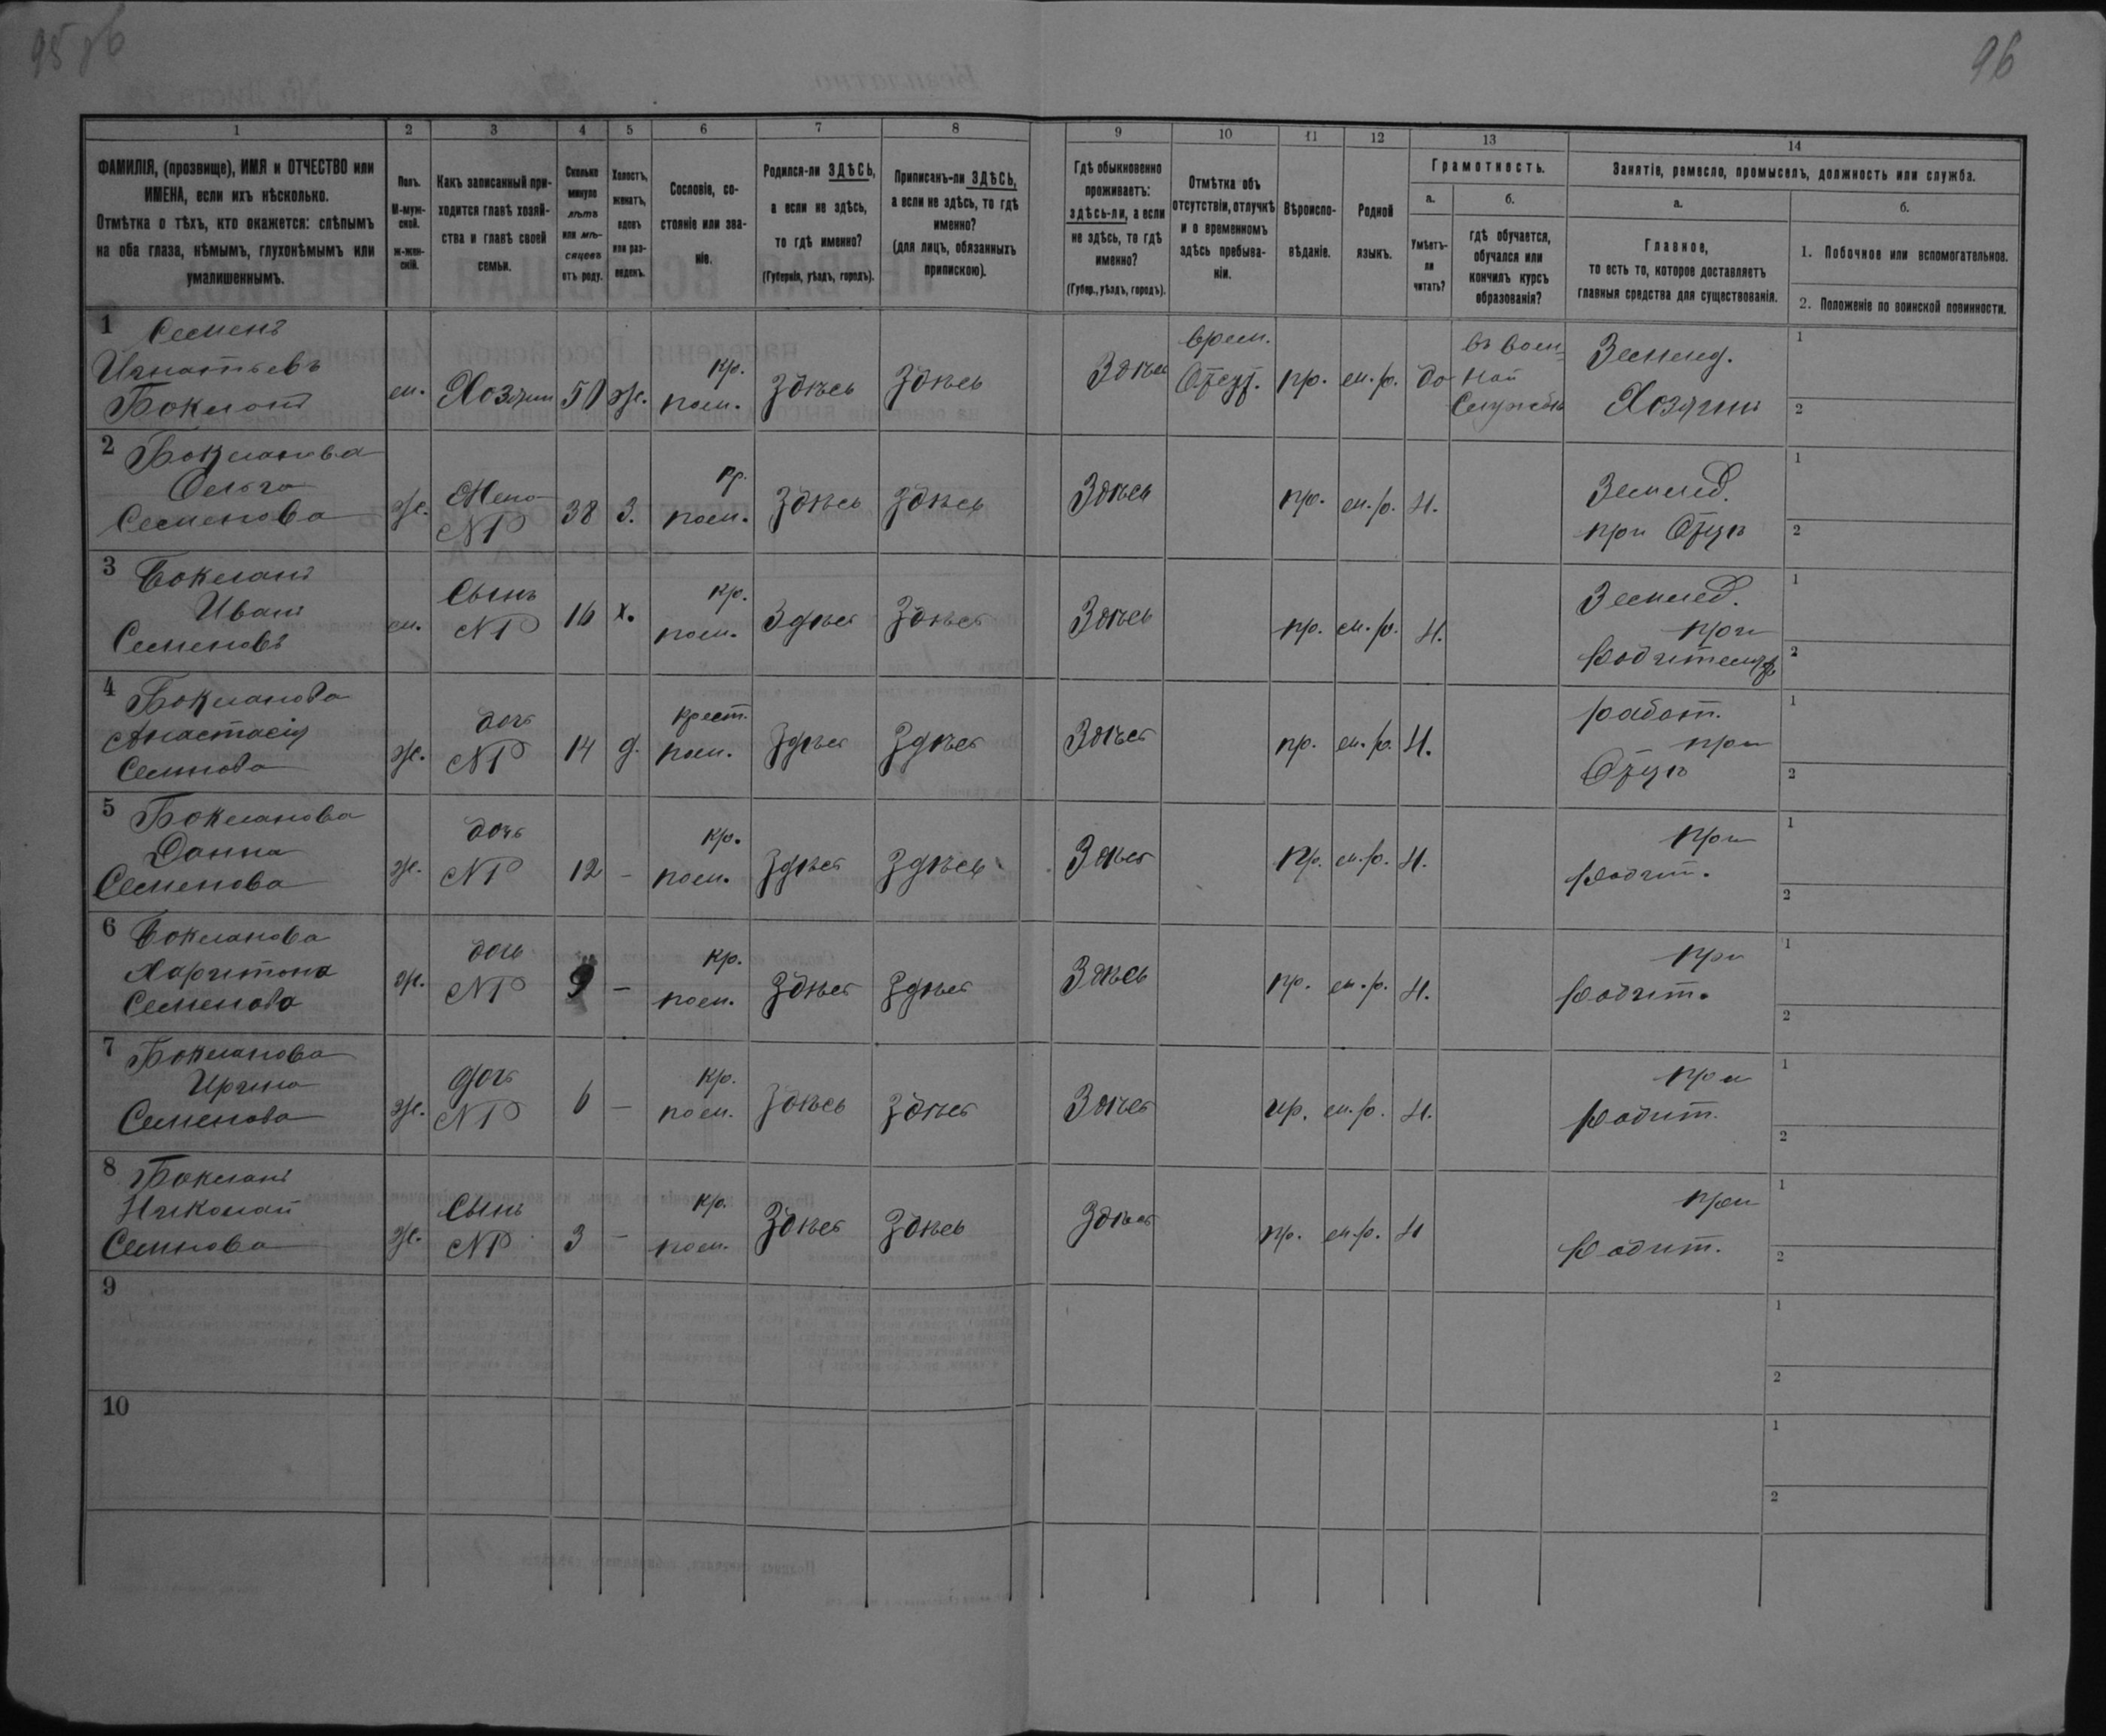 95 об
96
1
2
3
4
5
6
7
8
9
10
11
12
13
14
ФАМИЛІЯ, (прозвище), ИМЯ и ОТЧЕСТВО или
ИМЕНА, если ихъ нѣсколько.
Отмѣтка о тѣхъ, кто окажется: слѣпымъ
на оба глаза, нѣмымъ, глухонѣмымъ или
умалишеннымъ.
Полъ.
М-муж-
ской.
ж-жен-
скій.
Какъ записанный при-
ходится главѣ хозяй-
ства и главѣ своей
семьи.
Сколько
минуло
лѣтъ
или мѣ-
сяцевъ
отъ роду.
Холостъ,
женатъ,
вдовъ
или раз-
веденъ.
Сословіе, со-
стояніе или зва-
ніе.
Родился-ли ЗДѢСЬ,
а если не здѣсь,
то гдѣ именно?
(Губернія, уѣздъ, городъ).
Приписанъ-ли ЗДѢСЬ,
а если не здѣсь, то гдѣ
именно?
(для лицъ, обязанныхъ
припискою).
Гдѣ обыкновенно
проживаетъ:
здѣсь-ли, а если
не здѣсь, то гдѣ
именно?
(Губер., уѣздъ, городъ).
Отмѣтка объ
отсутствіи, отлучкѣ
и о временномъ
здѣсь пребыва-
ніи.
Вѣроиспо-
вѣданіе.
Родной
языкъ.
Грамотность.
а.
Умѣетъ-
ли
читать?
б.
гдѣ обучается,
обучался или
кончилъ курсъ
образованія?
Занятіе, ремесло, промыселъ, должность или служба.
а.
Главное,
то есть то, которое доставляетъ
главныя средства для существованія.
б.
1. Побочное или вспомогательное.
2. Положеніе по воинской повинности.
1 Семенъ
Игнатьевъ
Бокланъ
м. Хозяин 50 ж. кр. пом. Здѣсь Здѣсь Здѣсь
врем.
Отсут. пр. м.р. да
въ воен-
ной
службѣ
Землед.
Хозяинъ
1
2
2 Бокланова
Ольга
Семенова
ж. Жена №1º 38 З. кр. пом. Здѣсь Здѣсь Здѣсь пр. м.р. Н.
Землед.
при Отцѣ
1
2
3 Бокланъ
Иванъ
Семеновъ
м. Сынъ №1º 16 х. кр. пом. Здѣсь Здѣсь Здѣсь пр. м.р. Н.
Землед.
при
родителяхъ
1
2
4 Бокланова
Анастасія
Семнова
ж. дочь №1º 14 д. крест. пом. Здѣсь Здѣсь Здѣсь пр. м.р. Н.
работ.
при
Отцѣ
1
2
5 Бокланова
Домна
Семенова
ж. дочь №1º 12 - кр. пом. Здѣсь Здѣсь Здѣсь пр. м.р. Н.
при
родит.
1
2
6 Бокланова
Харитона
Семенова
ж. дочь №1º 9 - кр. пом. Здѣсь Здѣсь Здѣсь пр. м.р. Н.
при
родит.
1
2
7 Бокланова
Ирина
Семенова
ж. дочь №1º 6 - кр. пом. Здѣсь Здѣсь Здѣсь пр. м.р. Н.
при
родит.
1
2
8 Бокланъ
Николай
Семнова
ж. Сынъ №1º 3 - кр. пом. Здѣсь Здѣсь Здѣсь пр. м.р. Н
при
родит.
1
2
9
1
2
10
1
2